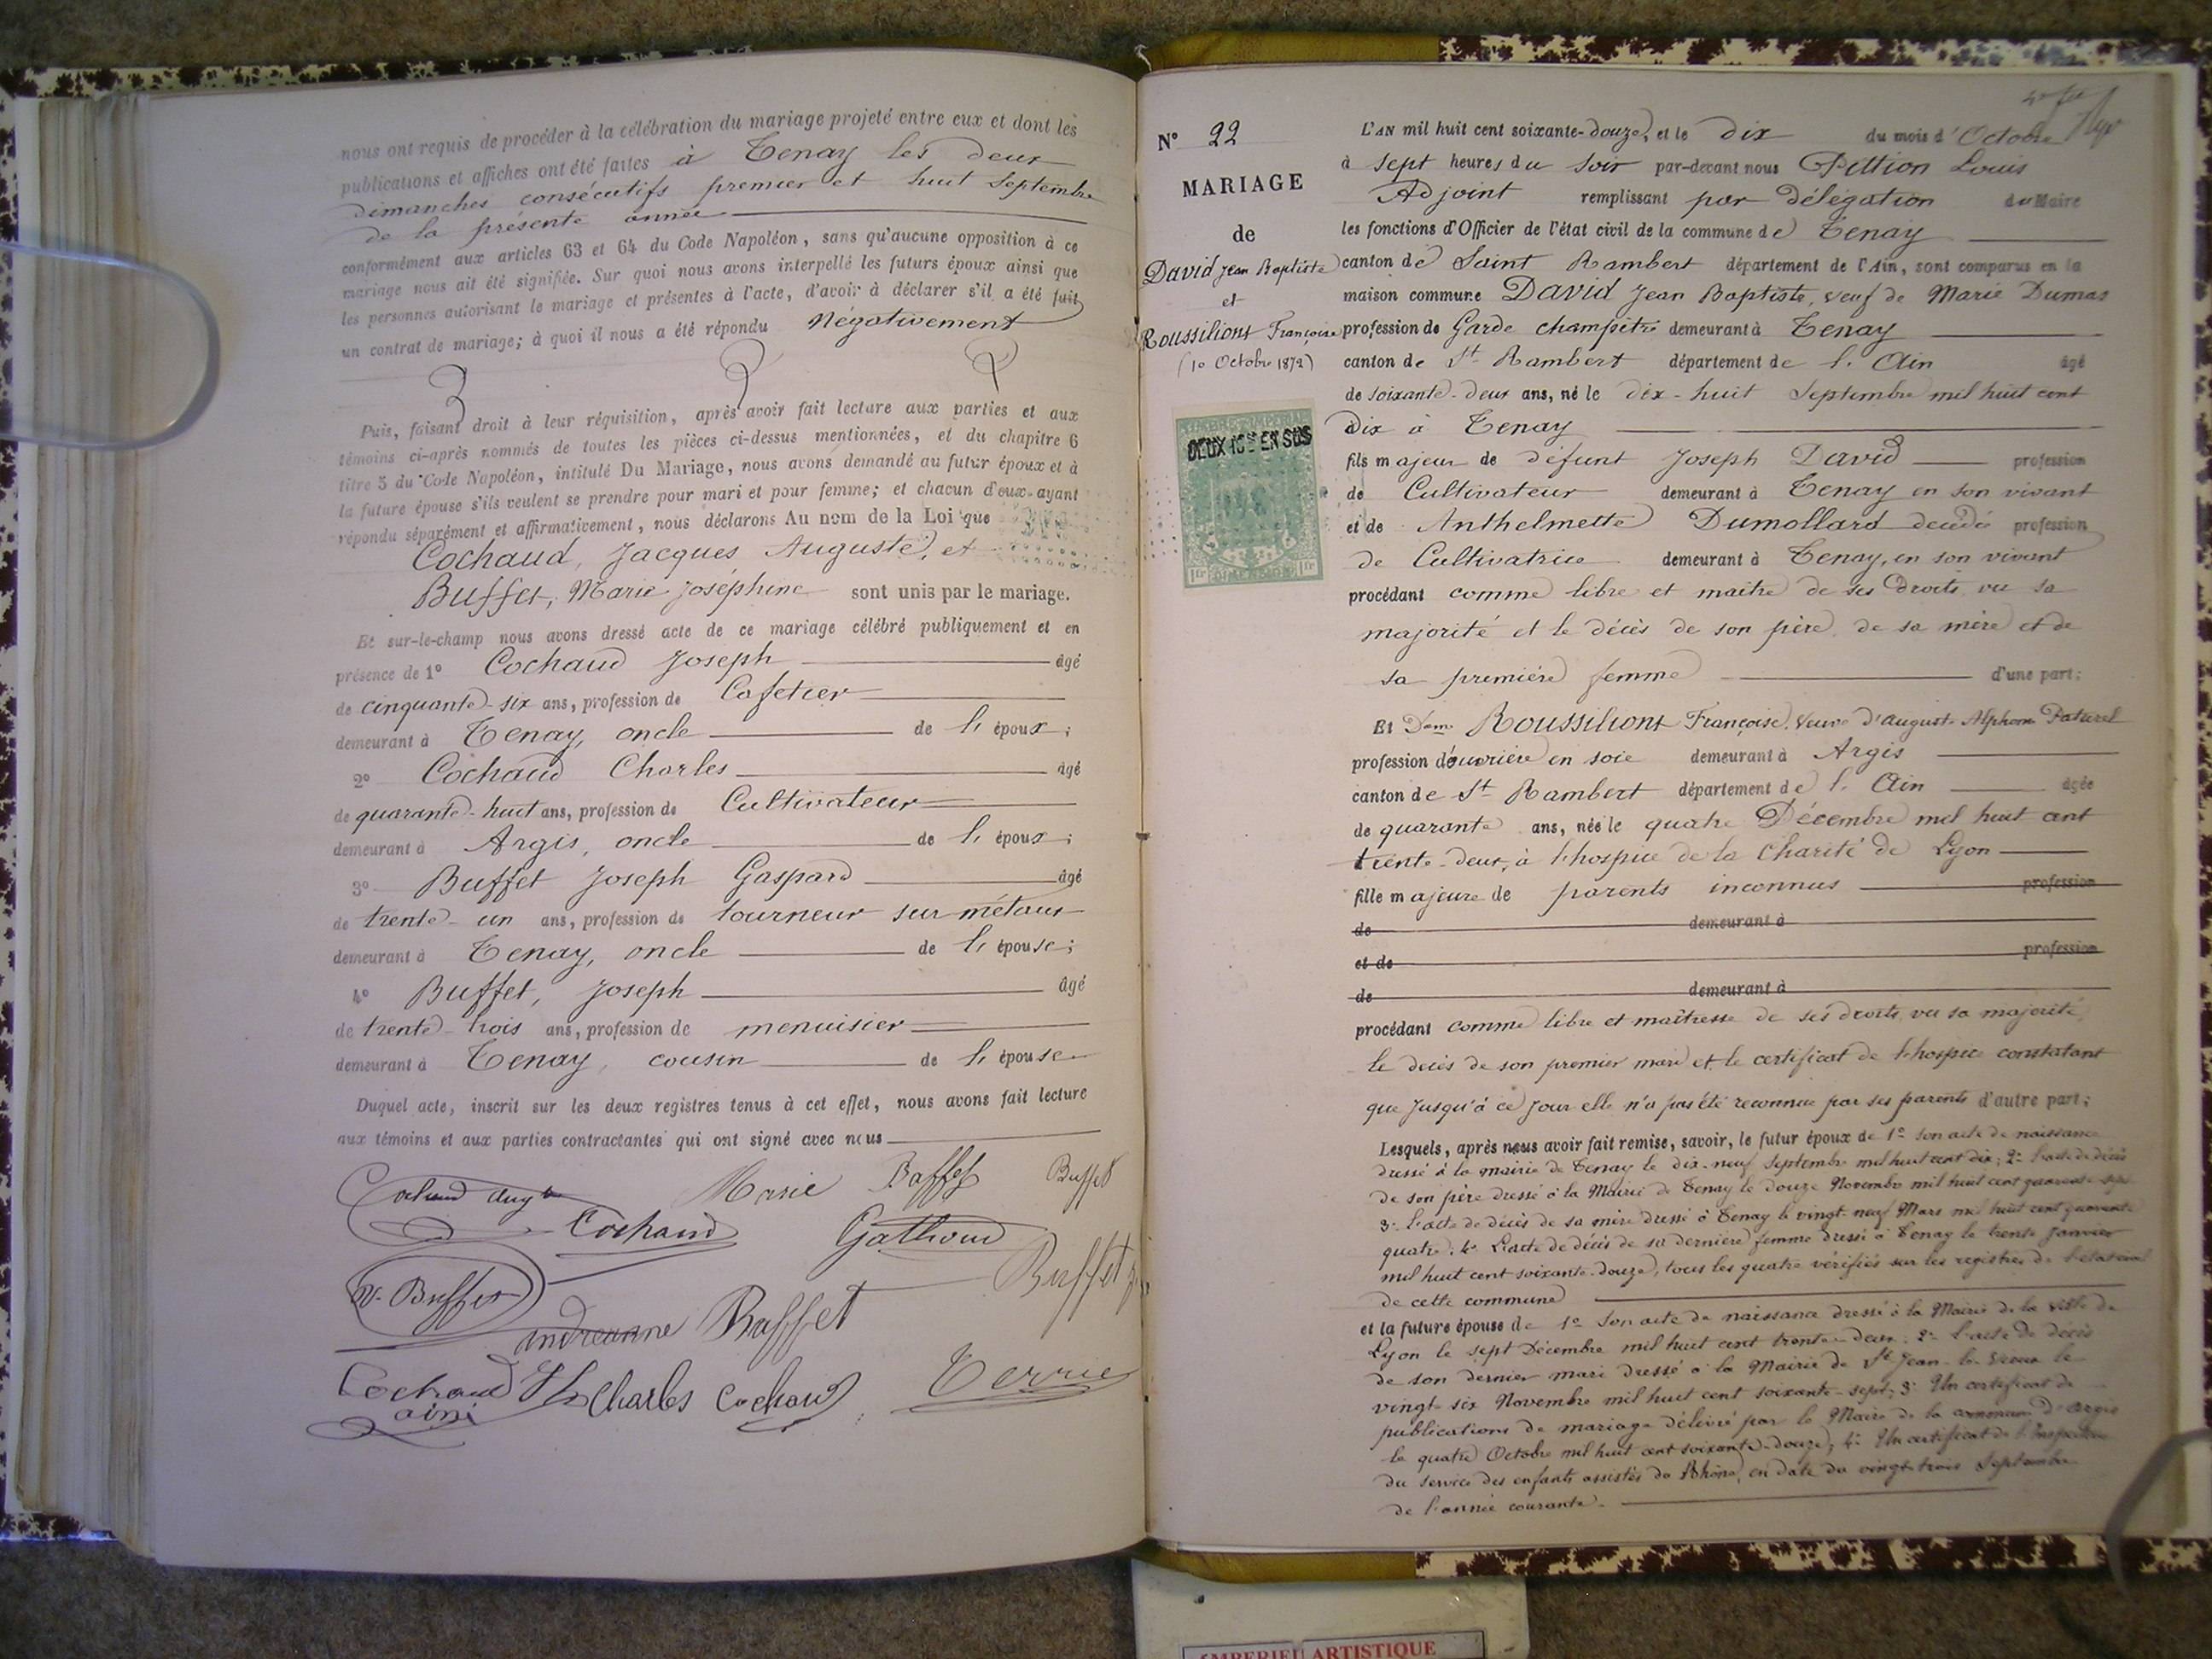 nous ont requis de procéder à la célébration du mariage projeté entre eux et dont les
publications et affiches ont été faites à Tenay les deux
dimanches consécutifs premier et huit Septembre
de la présente année
conformément aux articles 63 et 64 du Code Napoléon, sans qu'aucune opposition à ce
mariage nous ait été signifiée. Sur quoi nous avons interpellé les futurs époux ainsi que
les personnes autorisant le mariage et présentes à l'acte, d'avoir à déclarer s'il a été fait
un contrat de mariage; à quoi il nous a été répondu Négativement
Puis, faisant droit à leur réquisition, après avoir fait lecture aux parties et aux
témoins ci-après nommés de toutes les pièces ci-dessus mentionnées, et du chapitre 6
titre 5 du Code Napoléon, intitulé Du Mariage, nous avons demandé au futur époux et à
la future épouse s'ils veulent se prendre pour mari et pour femme; et chacun d'eux ayant
répondu séparément et affirmativement, nous déclarons Au nom de la Loi que
Cochaud, Jacques Auguste, et
Buffet, Marie Joséphine sont unis par le mariage.
Et sur-le-champ nous avons dressé acte de ce mariage célébré publiquement et en
présence de 1° Cochaud Joseph âgé
de cinquante-six ans, profession de Cafetier
demeurant à Tenay, oncle de l' époux;
2° Cochaud Charles âgé
de quarante-huit ans, profession de Cultivateur
demeurant à Argis, oncle de l' époux;
3° Buffet Joseph Gaspard âgé
de trente-un ans, profession de tourneur sur métaux
demeurant à Tenay, oncle de l' épouse;
4° Buffet, Joseph âgé
de trente-trois ans, profession de menuisier
demeurant à Tenay, cousin de l' épouse
Duquel acte, inscrit sur les deux registres tenus à cet effet, nous avons fait lecture
aux témoins et aux parties contractantes qui ont signé avec nous
Cochaud Marie Buffet Buffet
Cochaud Gathoud
Buffet Buffet
Buffet
Cochaud Charles Cochaud Terrier
ainé
N° 22
MARIAGE
de
David Jean Baptiste
et
Roussilions Françoise
(10 Octobre 1872)
DEUX 10es EN SUS
1fr DIMENSION 1fr
L'AN mil huit cent soixante-douze, et le dix du mois d'Octobre
à sept heures du soir par-devant nous Pittion Louis
Adjoint remplissant par délégation du Maire
les fonctions d'Officier de l'état civil de la commune de Tenay
canton de Saint Rambert département de l'Ain, sont comparus en la
maison commune David Jean Baptiste, veuf de Marie Dumas
profession de Garde champêtre demeurant à Tenay
canton de St Rambert département de l'Ain âgé
de soixante-deux ans, né le dix-huit Septembre mil huit cent
dix à Tenay
fils majeur de défunt Joseph David profession
de Cultivateur demeurant à Tenay en son vivant
et de Anthelmette Dumollard décédée profession
de Cultivatrice demeurant à Tenay, en son vivant
procédant comme libre et maître de ses droits vu sa
majorité et le décès de son père, de sa mère et de
sa première femme d'une part;
Et Dem Roussilions Françoise, veuve d'Auguste Alphonse Paturel
profession d'ouvrière en soie demeurant à Argis
canton de St Rambert département de l'Ain âgée
de quarante ans, née le quatre Décembre mil huit cent
trente-deux, à l'hospice de la Charité de Lyon
fille majeure de parents inconnus profession
de demeurant à
et de profession
de demeurant à
procédant comme libre et maîtresse de ses droits, vu sa majorité,
le décès de son premier mari et le certificat de l'hospice constatant
que jusqu'à ce jour elle n'a pas été reconnue par ses parents d'autre part;
Lesquels, après nous avoir fait remise, savoir, le futur époux de 1° Son acte de naissance
dressé à la mairie de Tenay le dix-neuf Septembre mil huit cent dix; 2° l'acte de décès
de son père dressé à la Mairie de Tenay le douze Novembre mil huit cent quarante-sept
3° l'acte de décès de sa mère dressé à Tenay le vingt-neuf Mars mil huit cent quarante
quatre; 4° L'acte de décès de sa dernière femme dressé à Tenay le trente Janvier
mil huit cent soixante-douze, tous les quatre vérifiés sur les registres de l'état civil
de cette commune
et la future épouse de 1° Son acte de naissance dressé à la Mairie de la ville de
Lyon le sept Décembre mil huit cent trente-deux; 2° l'acte de décès
de son dernier mari dressé à la Mairie de St Jean-le-Vieux le
vingt-six Novembre mil huit cent soixante-sept; 3° Un certificat de
publications de mariage délivré par le Maire de la commune d'Argis
le quatre Octobre mil huit cent soixante-douze; 4° Un certificat de l'Inspecteur
du service des enfants assistés du Rhône, en date du vingt-trois Septembre
de l'année courante.
ARTISTIQUE